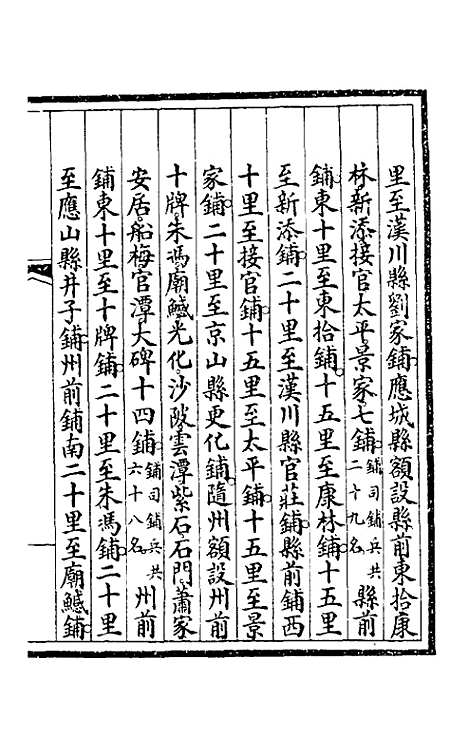 里至漢川縣劉家鋪應城縣額設縣前東拾康
林新添接官太平景家七鋪鋪司鋪兵共二十九名縣前
鋪東十里至東拾鋪十五里至康林鋪十五里
至新添鋪二十里至漢川縣官莊鋪縣前鋪西
十里至接官鋪十五里至太平鋪十五里至景
家鋪二十里至京山縣更化鋪隨州額設州前
十牌朱馮廟鱤光化沙陂雲潭紫石石門蕭家
安居船梅官潭大碑十四鋪鋪司鋪兵共六十八名州前
鋪東十里至十牌鋪二十里至朱馮鋪二十里
至應山縣井子鋪州前鋪南二十里至廟鱤鋪